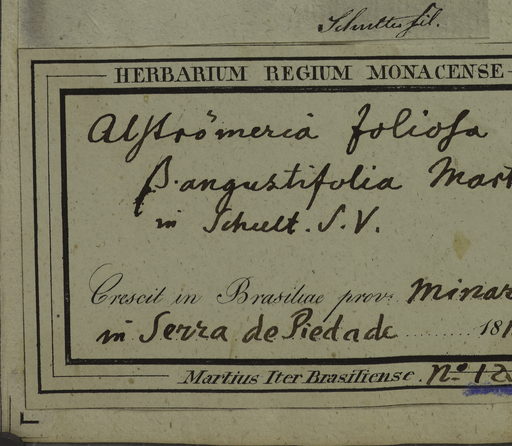 Schultes fil.
HERBARIUM REGIUM MONACENSE
Alſtrömeria folioſa
β. angustifolia Mart
in Schult. S. V.
Crescit in Brasiliae prov: Minar
in Serra de Piedade 181
Martius Iter Brasiliense. No. 12